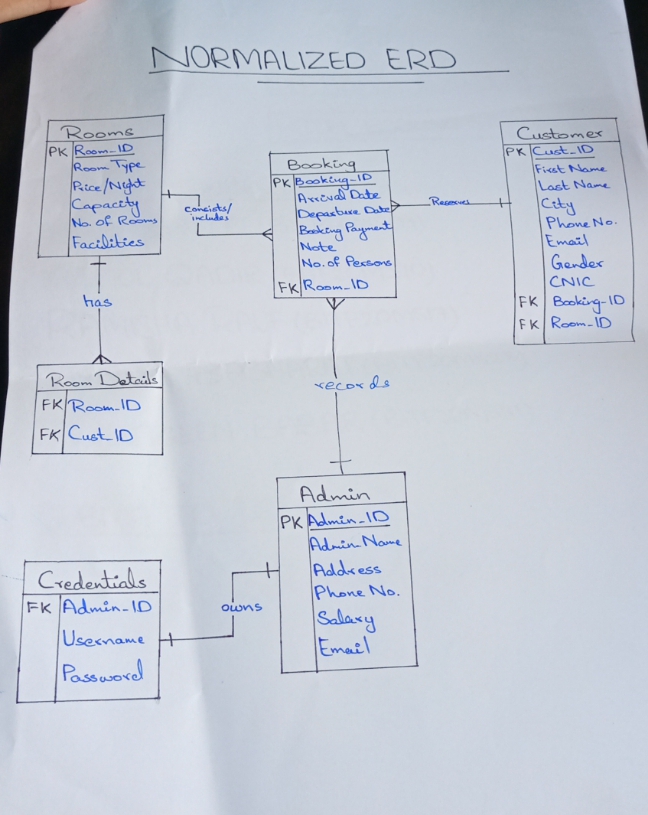 NORMALIZED ERD
Rooms
PK Room_ID
Room Type
Price/Night
Capacity
No. of Rooms
Facilities
consists/
includes
Booking
PK Booking-ID
Arrival Date
Departure Date
Booking Payment
Note
No. of Persons
FK Room_ID
Reserves
Customer
PK Cust_ID
First Name
Last Name
City
Phone No.
Email
Gender
CNIC
FK Booking-ID
FK Room_ID
has
Room Details
FK Room_ID
FK Cust_ID
records
Admin
PK Admin_ID
Admin Name
Address
Phone No.
Salary
Email
owns
Credentials
FK Admin_ID
Username
Password